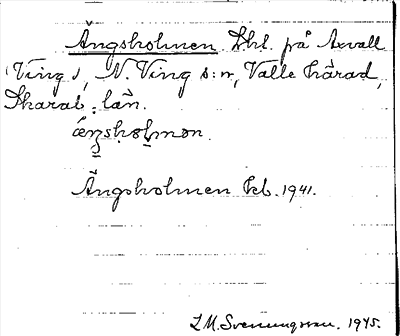 Ängsholmen. Lht. på Axvall
(Ving), N. Ving s:n, Valle härad,
Skarab. län.
ä́ŋshɷlmən.
Ängsholmen kb. 1941.
L.M. Svenungsson. 1945.